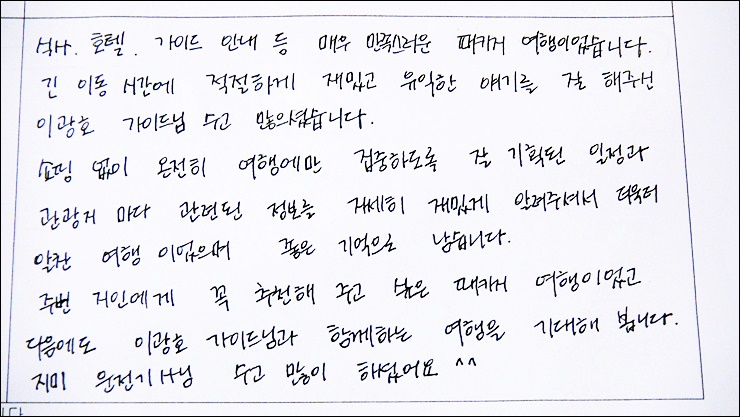 식사. 호텔. 가이드 안내 등 매우 만족스러운 패키지 여행이었습니다.
긴 이동 시간에 적절하게 재밌고 유익한 얘기를 잘 해주신
이광호 가이드님 수고 많으셨습니다.
쇼핑 없이 온전히 여행에만 집중하도록 잘 기획된 일정과
관광지 마다 관련된 정보를 자세히 재밌게 알려주셔서 더욱더
알찬 여행 이었으며 좋은 기억으로 남습니다.
주변 지인에게 꼭 추천해 주고 싶은 패키지 여행이었고
다음에도 이광호 가이드님과 함께하는 여행을 기대해 봅니다.
지미 운전기사님 수고 많이 하셨어요 ^^
니다